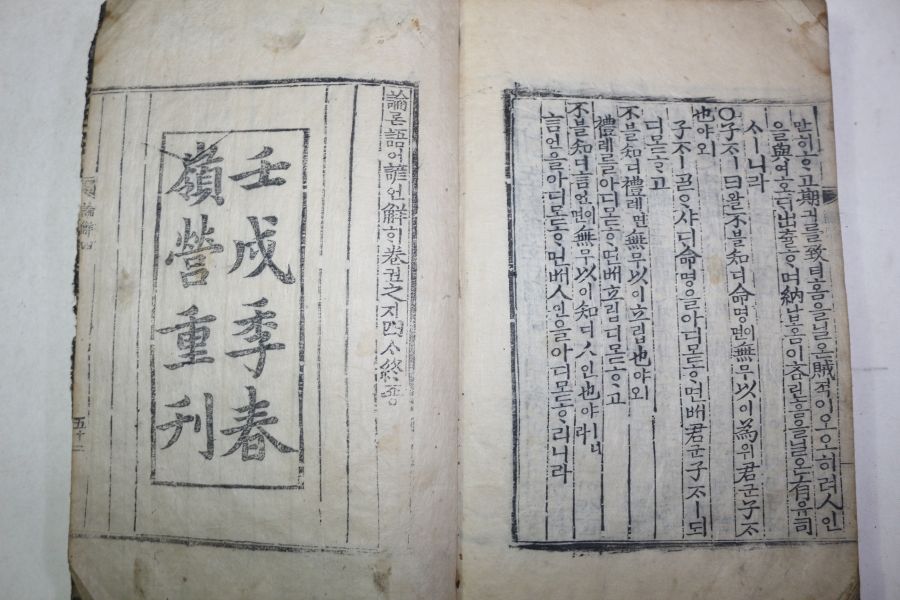 만이ᄒᆞ고期긔를致티홈을닐온賊적이오오히려人인
을與여호ᄃᆡ出츌ᄒᆞ며納납홈이吝린홈을닐온有유司
ᄉᆞㅣ니라
○子ᄌᆞㅣ曰왈不블知디命명면이無무以이爲위君군子ᄌᆞ
也야외
子ᄌᆞㅣᄀᆞᆯᄋᆞ샤ᄃᆡ命명을아디몯ᄒᆞ면ᄡᅥ君군子ᄌᆞㅣ되
디몯ᄒᆞ고
不블知디禮례면無무以이立립也야외
禮례ᄅᆞᆯ아디몯ᄒᆞ면ᄡᅥ立립디몯ᄒᆞ고
不블知디言언면이無무以이知디人인也야ㅣ니라
言언을아디몯ᄒᆞ면ᄡᅥ人인을아디몯ᄒᆞ리니라
論론語어諺언解ᄒᆡ卷권之지四ᄉᆞ終죵
壬戌季春
嶺營重刊